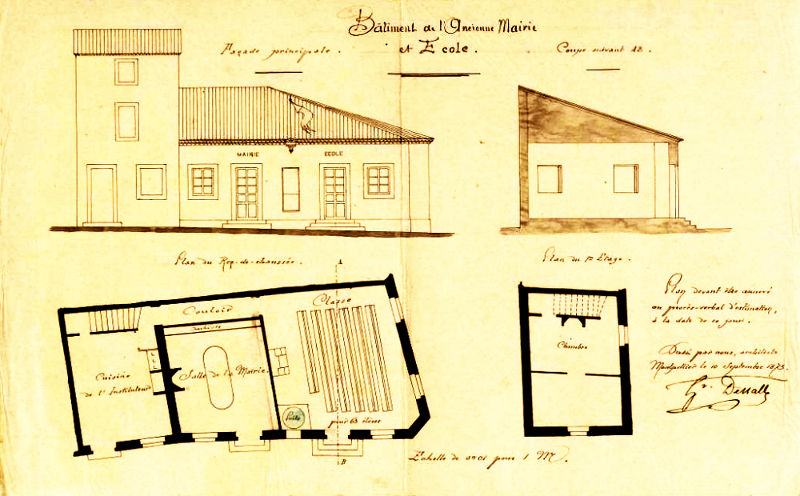 Bâtiment de l'Ancienne Mairie
et Ecole.
Façade principale.
Coupe suivant AB.
MAIRIE
ECOLE
Plan du Rez-de-chaussée.
Plan du 1er Etage.
A
Couloir
Classe
Cuisine
de l'Instituteur
Salle de la Mairie.
pour 63 élèves
B
Chambre
Plan devant être annexé
au procès-verbal d'estimation,
à la date de ce jour.
Dressé par nous, architecte
Montpellier le 10 Septembre 1873.
Echelle de 0m01 pour 1 M.